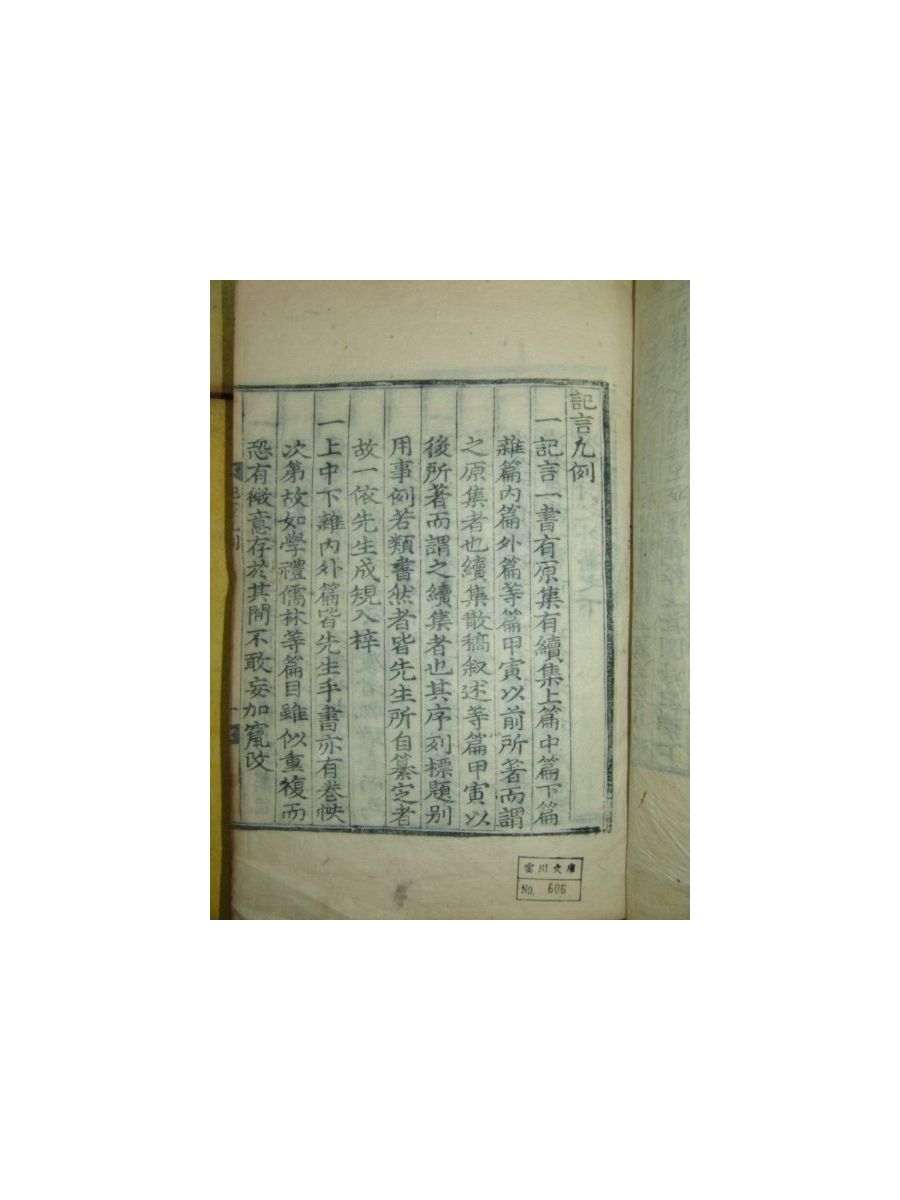 記言凡例
一記言一書有原集有續集上篇中篇下篇
雜篇內篇外篇等篇甲寅以前所著而謂
之原集者也續集散稿叙述等篇甲寅以
後所著而謂之續集者也其序列標題別
用事例若類書然者皆先生所自纂定者
故一依先生成規入梓
一上中下雜內外篇皆先生手書亦有卷帙
次第故如學禮儒林等篇目雖似重複而
恐有微意存於其間不敢妄加竄改
雪川文庫
No. 606